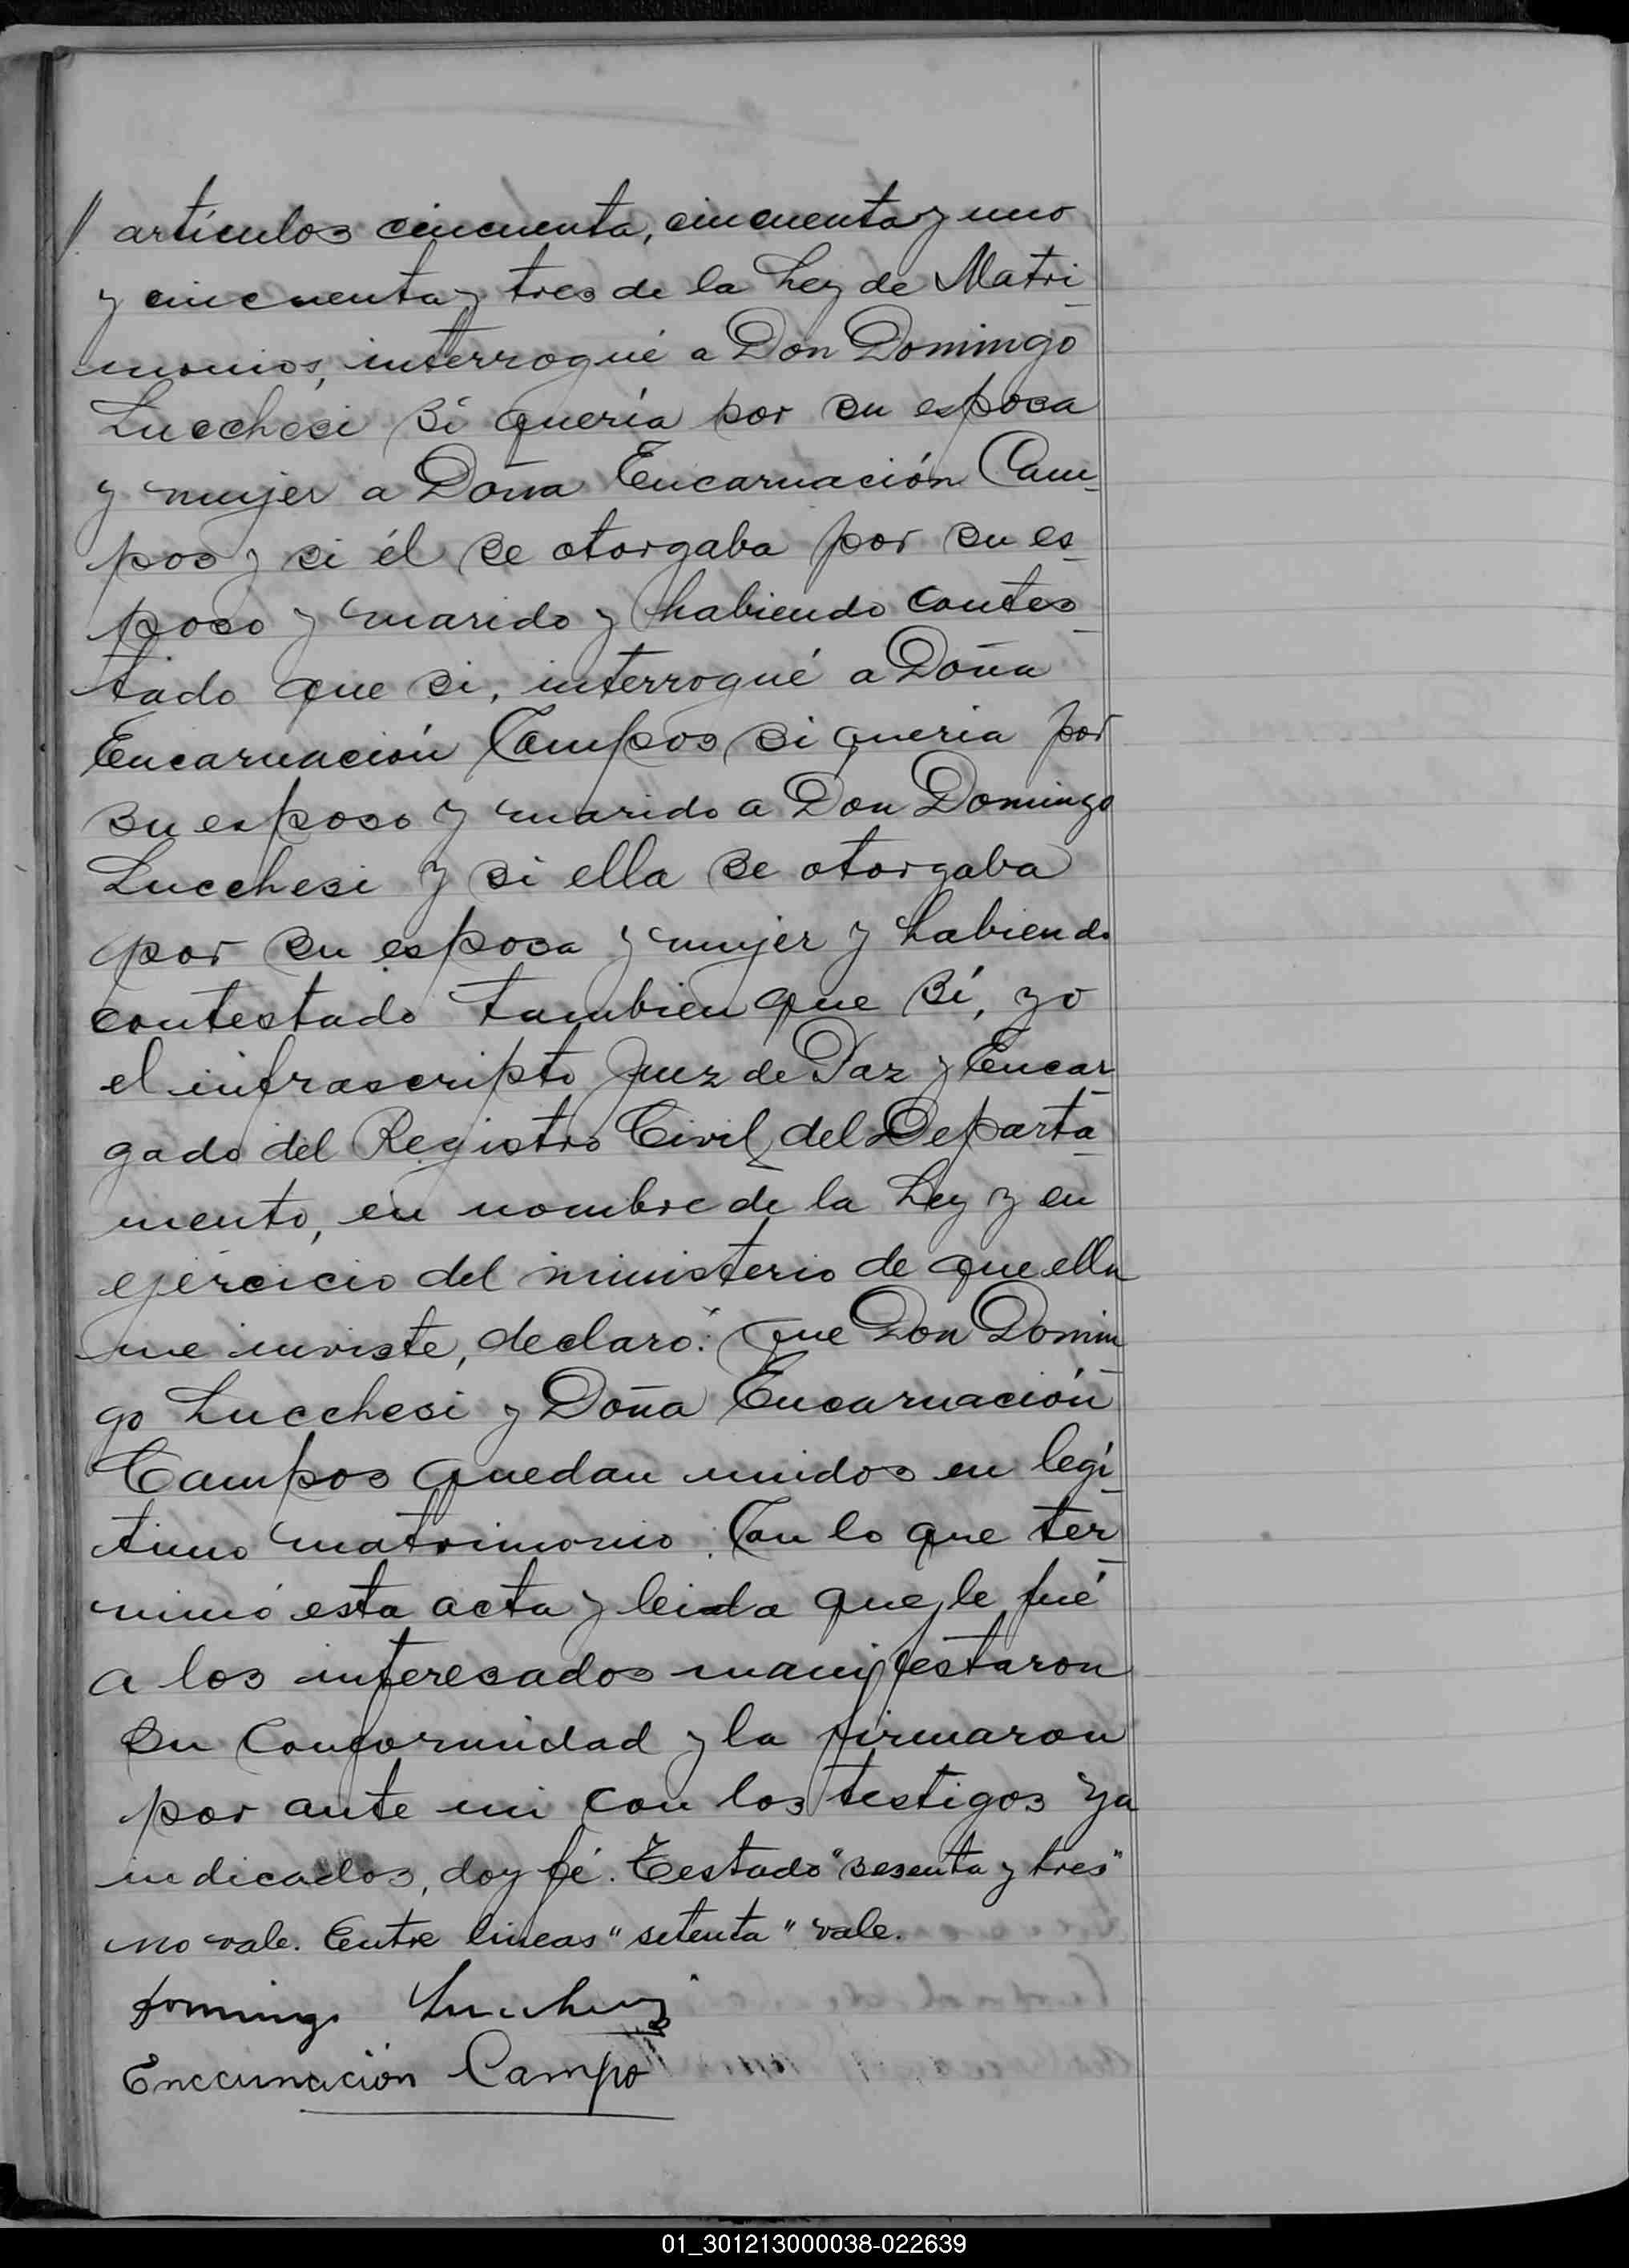 // artículos cincuenta, cincuenta y uno
y cincuenta y tres de la Ley de Matri
monios, interrogué a Don Domingo
Lucchesi si quería por su esposa
y mujer a Doña Encarnación Cam
pos y si él se otorgaba por su es
poso y marido y habiendo contes
tado que si, interrogué a Doña
Encarnación Campos si queria por
su esposo y marido a Don Domingo
Lucchesi y si ella se otorgaba
por su esposa y mujer y habiendo
contestado tambien que sí, yo
el infrascripto Juez de Paz y Encar
gado del Registro Civil del Departa
mento, en nombre de la Ley y en
ejercicio del ministerio de que ella
me inviste, declaro: que Don Domin
go Lucchesi y Doña Encarnación
Campos quedan unidos en legí
timo matrimonio. Con lo que ter
minó esta acta y leida que le fué
a los interesados manifestaron
su conformidad y la firmaron
por ante mi con los testigos ya
indicados, doy fé. Testado "sesenta y tres"
no vale. Entre lineas "setenta" vale.
Domingo Lucchesi
Encarnación Campo
01_301213000038-022639